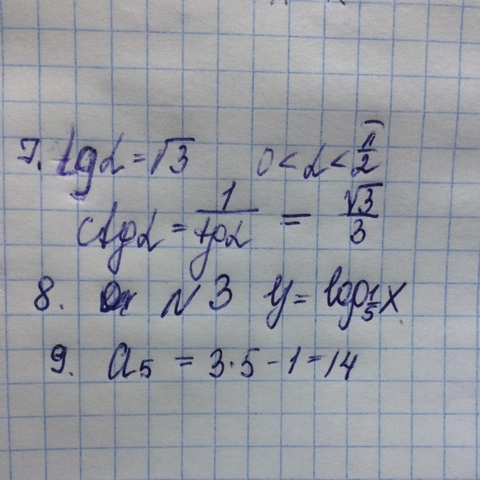 7. tgα = √3 0 < α < π/2
ctgα = 1/tgα = √3/3
8. N 3 y = log1/5 x
9. a5 = 3·5 - 1 = 14